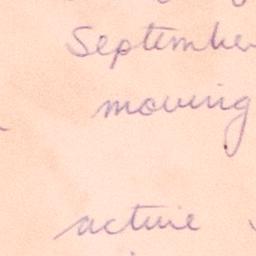 September
moving
active